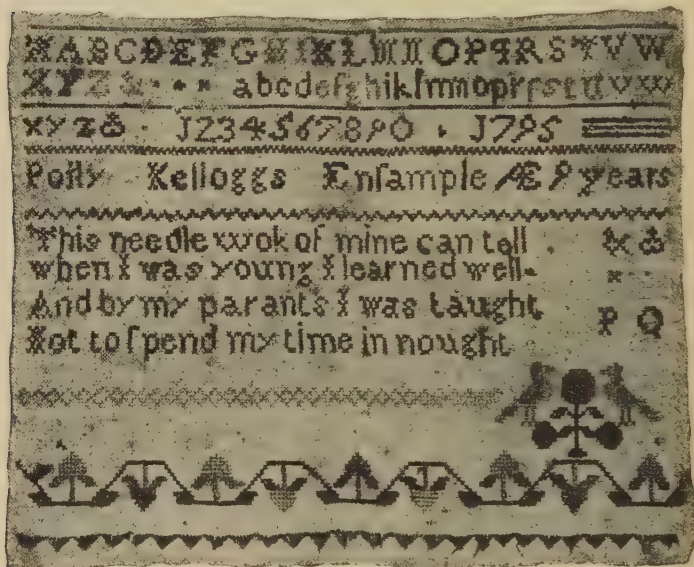 ABCDEFGHIKLMNOPQRSTVW
XYZ& abcdefghiklmnopqrsstuvwx
xyz& 1234567890 . 1795
Polly Kelloggs Ensample Æ 9 years
This needle wok of mine can tell . &
when I was young I learned well
And by my parants I was taught
P Q
Not to spend my time in nought